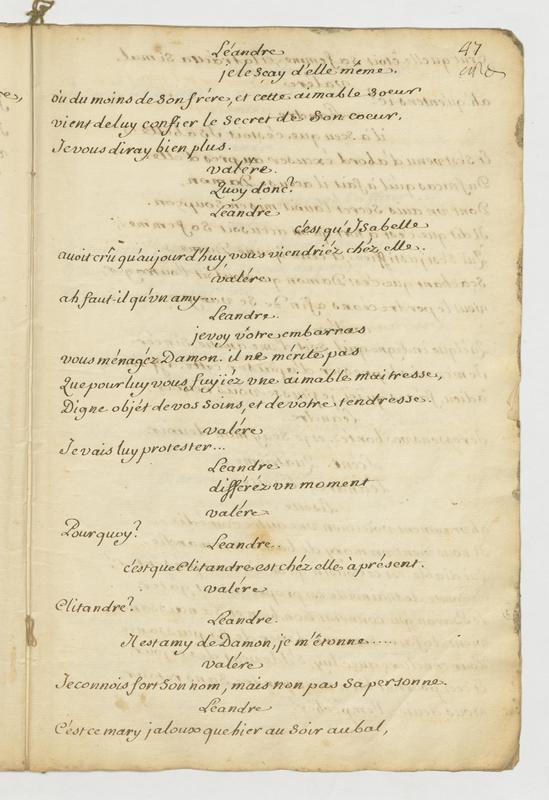 47
Léandre
je le sçay d'elle même.
ou du moins de son frére, et cette aimable soeur
vient de luy confier le secret de son coeur,
Je vous diray bien plus.
valére.
Quoy donc?
Léandre
c'est qu'Isabelle
avoit crû qu'aujourd'huy vous viendriéz chéz elle.
valére
ah faut-il qu'vn amy...
Léandre.
je voy vôtre embarras
vous ménagéz Damon. il ne mérite pas
Que pour luy vous fuyïéz vne aimable maitresse,
Digne objét de vos soins, et de vôtre tendresse.
valére
Je vais luy protester...
Léandre
différéz vn moment
valére
Pourquoy?
Léandre.
c'est que Clitandre est chéz elle à présent.
valére
Clitandre?
Léandre.
Il est amy de Damon, je m'étonne.....
valére
Je connois fort son nom, mais non pas sa personne.
Léandre
C'est ce mary jaloux que hier au soir au bal,